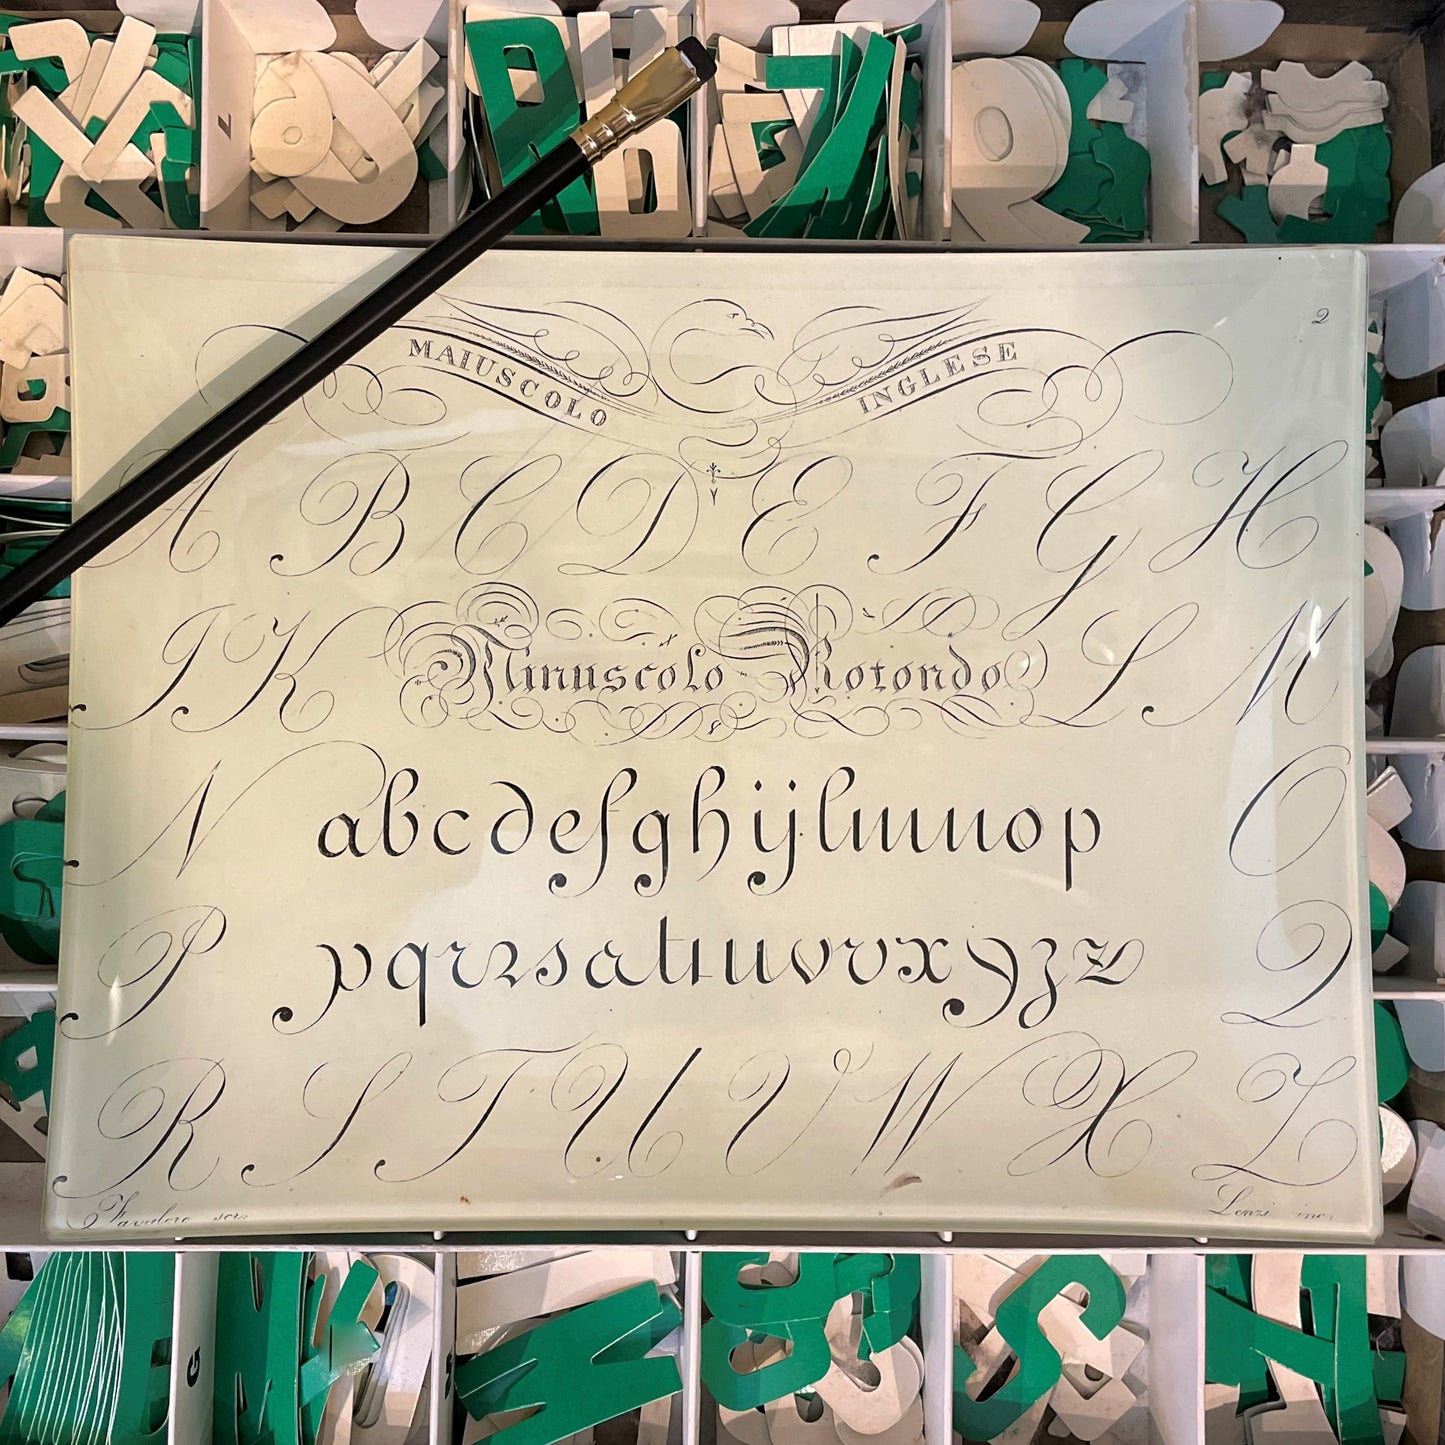 2
MAIUSCOLO INGLESE
A B C D E F G H
I K Minuscolo Rotondo L M
N abcdefghijlmnop O
P pqrzsatuvvxyzz Q
R S T U V W X Z
Favoloro scr. Lenzi inc.
L
G